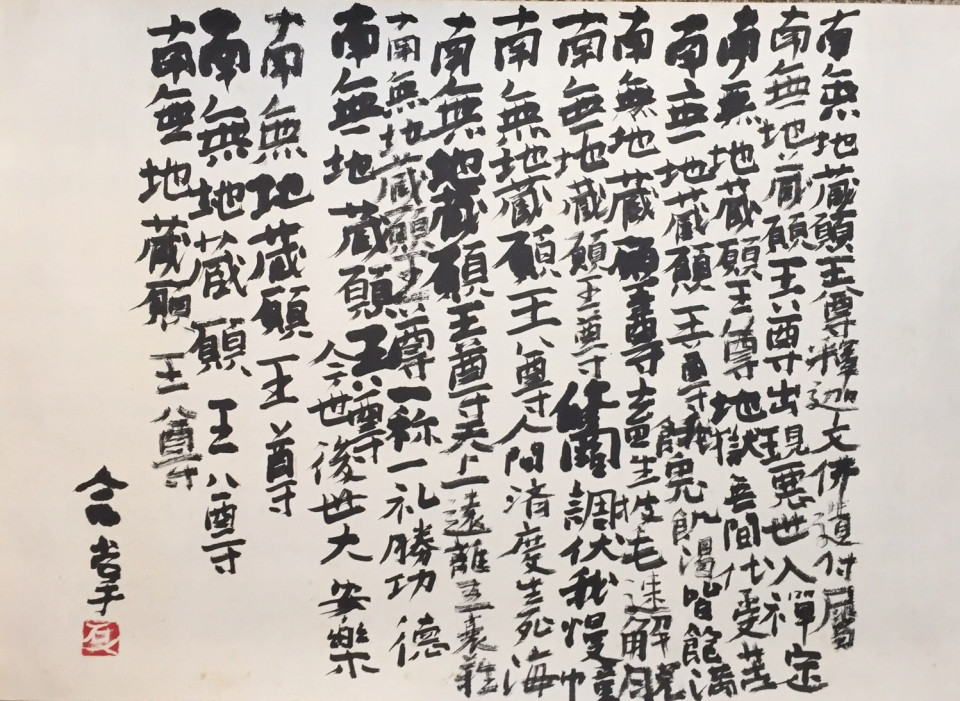 南無地蔵願王尊釋迦文佛遺付属
南無地蔵願王尊出現悪世入禪定
南無地蔵願王尊地獄無間代受苦
南無地蔵願王尊餓鬼飢渇皆飽満
南無地蔵願王尊畜生披毛速解脱
南無地蔵願王尊修羅調伏我慢幢
南無地蔵願王尊人間済度生死海
南無地蔵願王尊天上遠離五衰難
南無地蔵願王尊一称一礼勝功徳
南無地蔵願王尊今世後世大安樂
南無地蔵願王尊
南無地蔵願王尊
南無地蔵願王尊
合掌